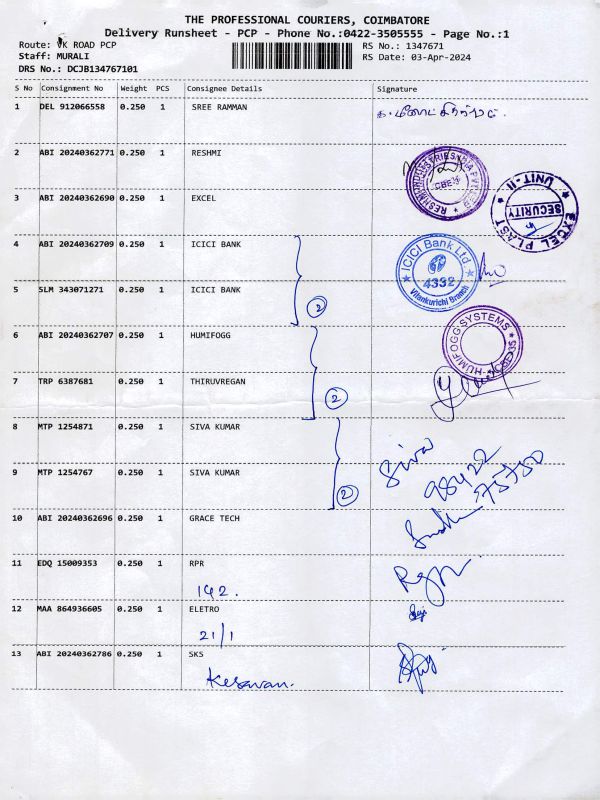 THE PROFESSIONAL COURIERS, COIMBATORE
Delivery Runsheet - PCP - Phone No.:0422-3505555 - Page No.:1
Route: VK ROAD PCP
RS No.: 1347671
Staff: MURALI
RS Date: 03-Apr-2024
DRS No.: DCJB134767101
S No Consignment No Weight PCS Consignee Details Signature
1 DEL 912066558 0.250 1 SREE RAMMAN
2 ABI 20240362771 0.250 1 RESHMI
3 ABI 20240362690 0.250 1 EXCEL
EXCEL PLAST UNIT-II
SECURITY
4 ABI 20240362709 0.250 1 ICICI BANK
ICICI Bank Ltd.
4332
Vilankurichi Branch
5 SLM 343071271 0.250 1 ICICI BANK
2
6 ABI 20240362707 0.250 1 HUMIFOGG
HUMIFOGG SYSTEMS
7 TRP 6387681 0.250 1 THIRUVREGAN
2
8 MTP 1254871 0.250 1 SIVA KUMAR
Siva
98422
75750
9 MTP 1254767 0.250 1 SIVA KUMAR
2
10 ABI 20240362696 0.250 1 GRACE TECH
11 EDQ 15009353 0.250 1 RPR
142.
12 MAA 864936605 0.250 1 ELETRO
21/1
13 ABI 20240362786 0.250 1 SKS
Kesavan.